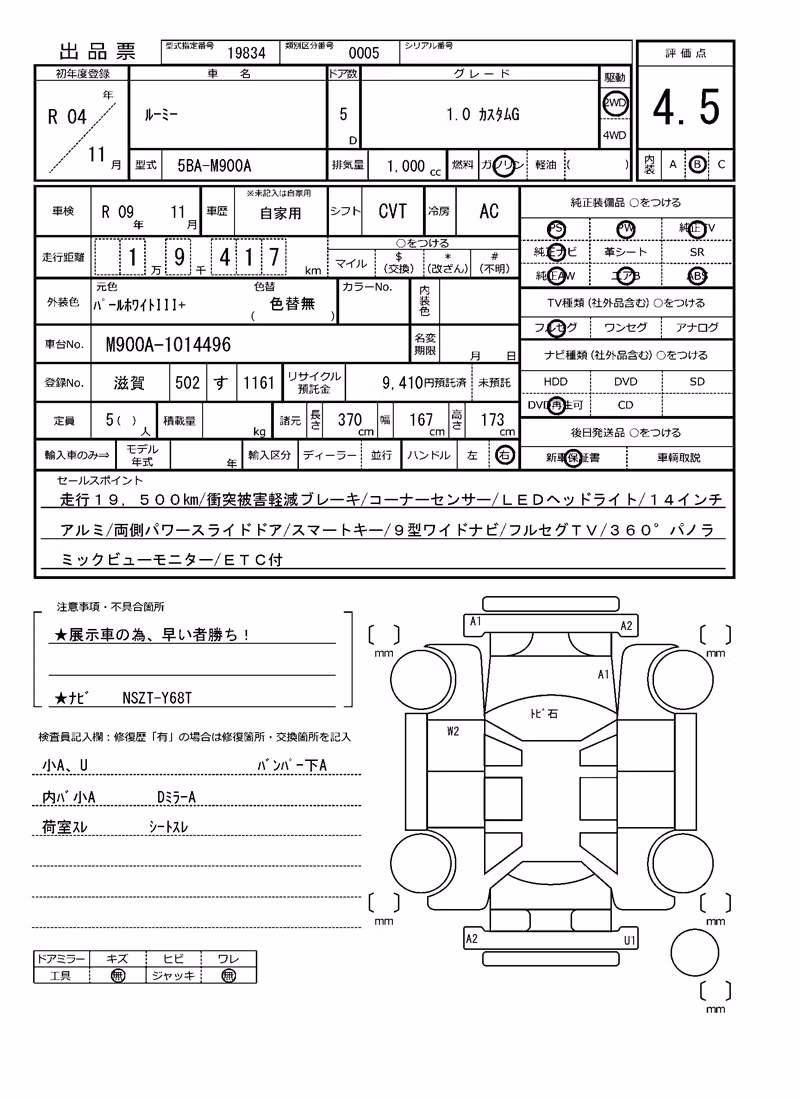 出品票 型式指定番号 19834 類別区分番号 0005 シリアル番号
評価点
4.5
内装 A B C
初年度登録 車名 ドア数 グレード 駆動
R 04 年 11 月 ルーミー 5 D 1.0 カスタムG 2WD 4WD
型式 5BA-M900A 排気量 1,000 cc 燃料 ガソリン 軽油 ( )
車検 R 09 年 11 月 車歴 ※未記入は自家用 自家用 シフト CVT 冷房 AC
走行距離 1 万 9 千 4 1 7 km ○をつける マイル $ (交換) * (改ざん) # (不明)
外装色 元色 パールホワイトIII+ 色替 ( 色替無 ) カラーNo. 内装色
車台No. M900A-1014496 名変期限 月 日
登録No. 滋賀 502 す 1161 リサイクル預託金 9,410円預託済 未預託
定員 5( ) 人 積載量 kg 諸元 長さ 370 cm 幅 167 cm 高さ 173 cm
輸入車のみ⇒ モデル年式 年 輸入区分 ディーラー 並行 ハンドル 左 右
純正装備品 ○をつける
PS PW 純正TV
純正ナビ 革シート SR
純正AW エアB ABS
TV種類(社外品含む) ○をつける
フルセグ ワンセグ アナログ
ナビ種類(社外品含む) ○をつける
HDD DVD SD
DVD再生可 CD
後日発送品 ○をつける
新車保証書 車輌取説
セールスポイント
走行19,500km/衝突被害軽減ブレーキ/コーナーセンサー/LEDヘッドライト/14インチ
アルミ/両側パワースライドドア/スマートキー/9型ワイドナビ/フルセグTV/360°パノラ
ミックビューモニター/ETC付
注意事項・不具合箇所
★展示車の為、早い者勝ち!
★ナビ NSZT-Y68T
検査員記入欄：修復歴「有」の場合は修復箇所・交換箇所を記入
小A、U バンパー下A
内バ小A DミラーA
荷室スレ シートスレ
ドアミラー キズ ヒビ ワレ
工具 無 ジャッキ 無
A1 A2
mm mm
A1
トビ石
W2
mm mm
A2 U1
mm